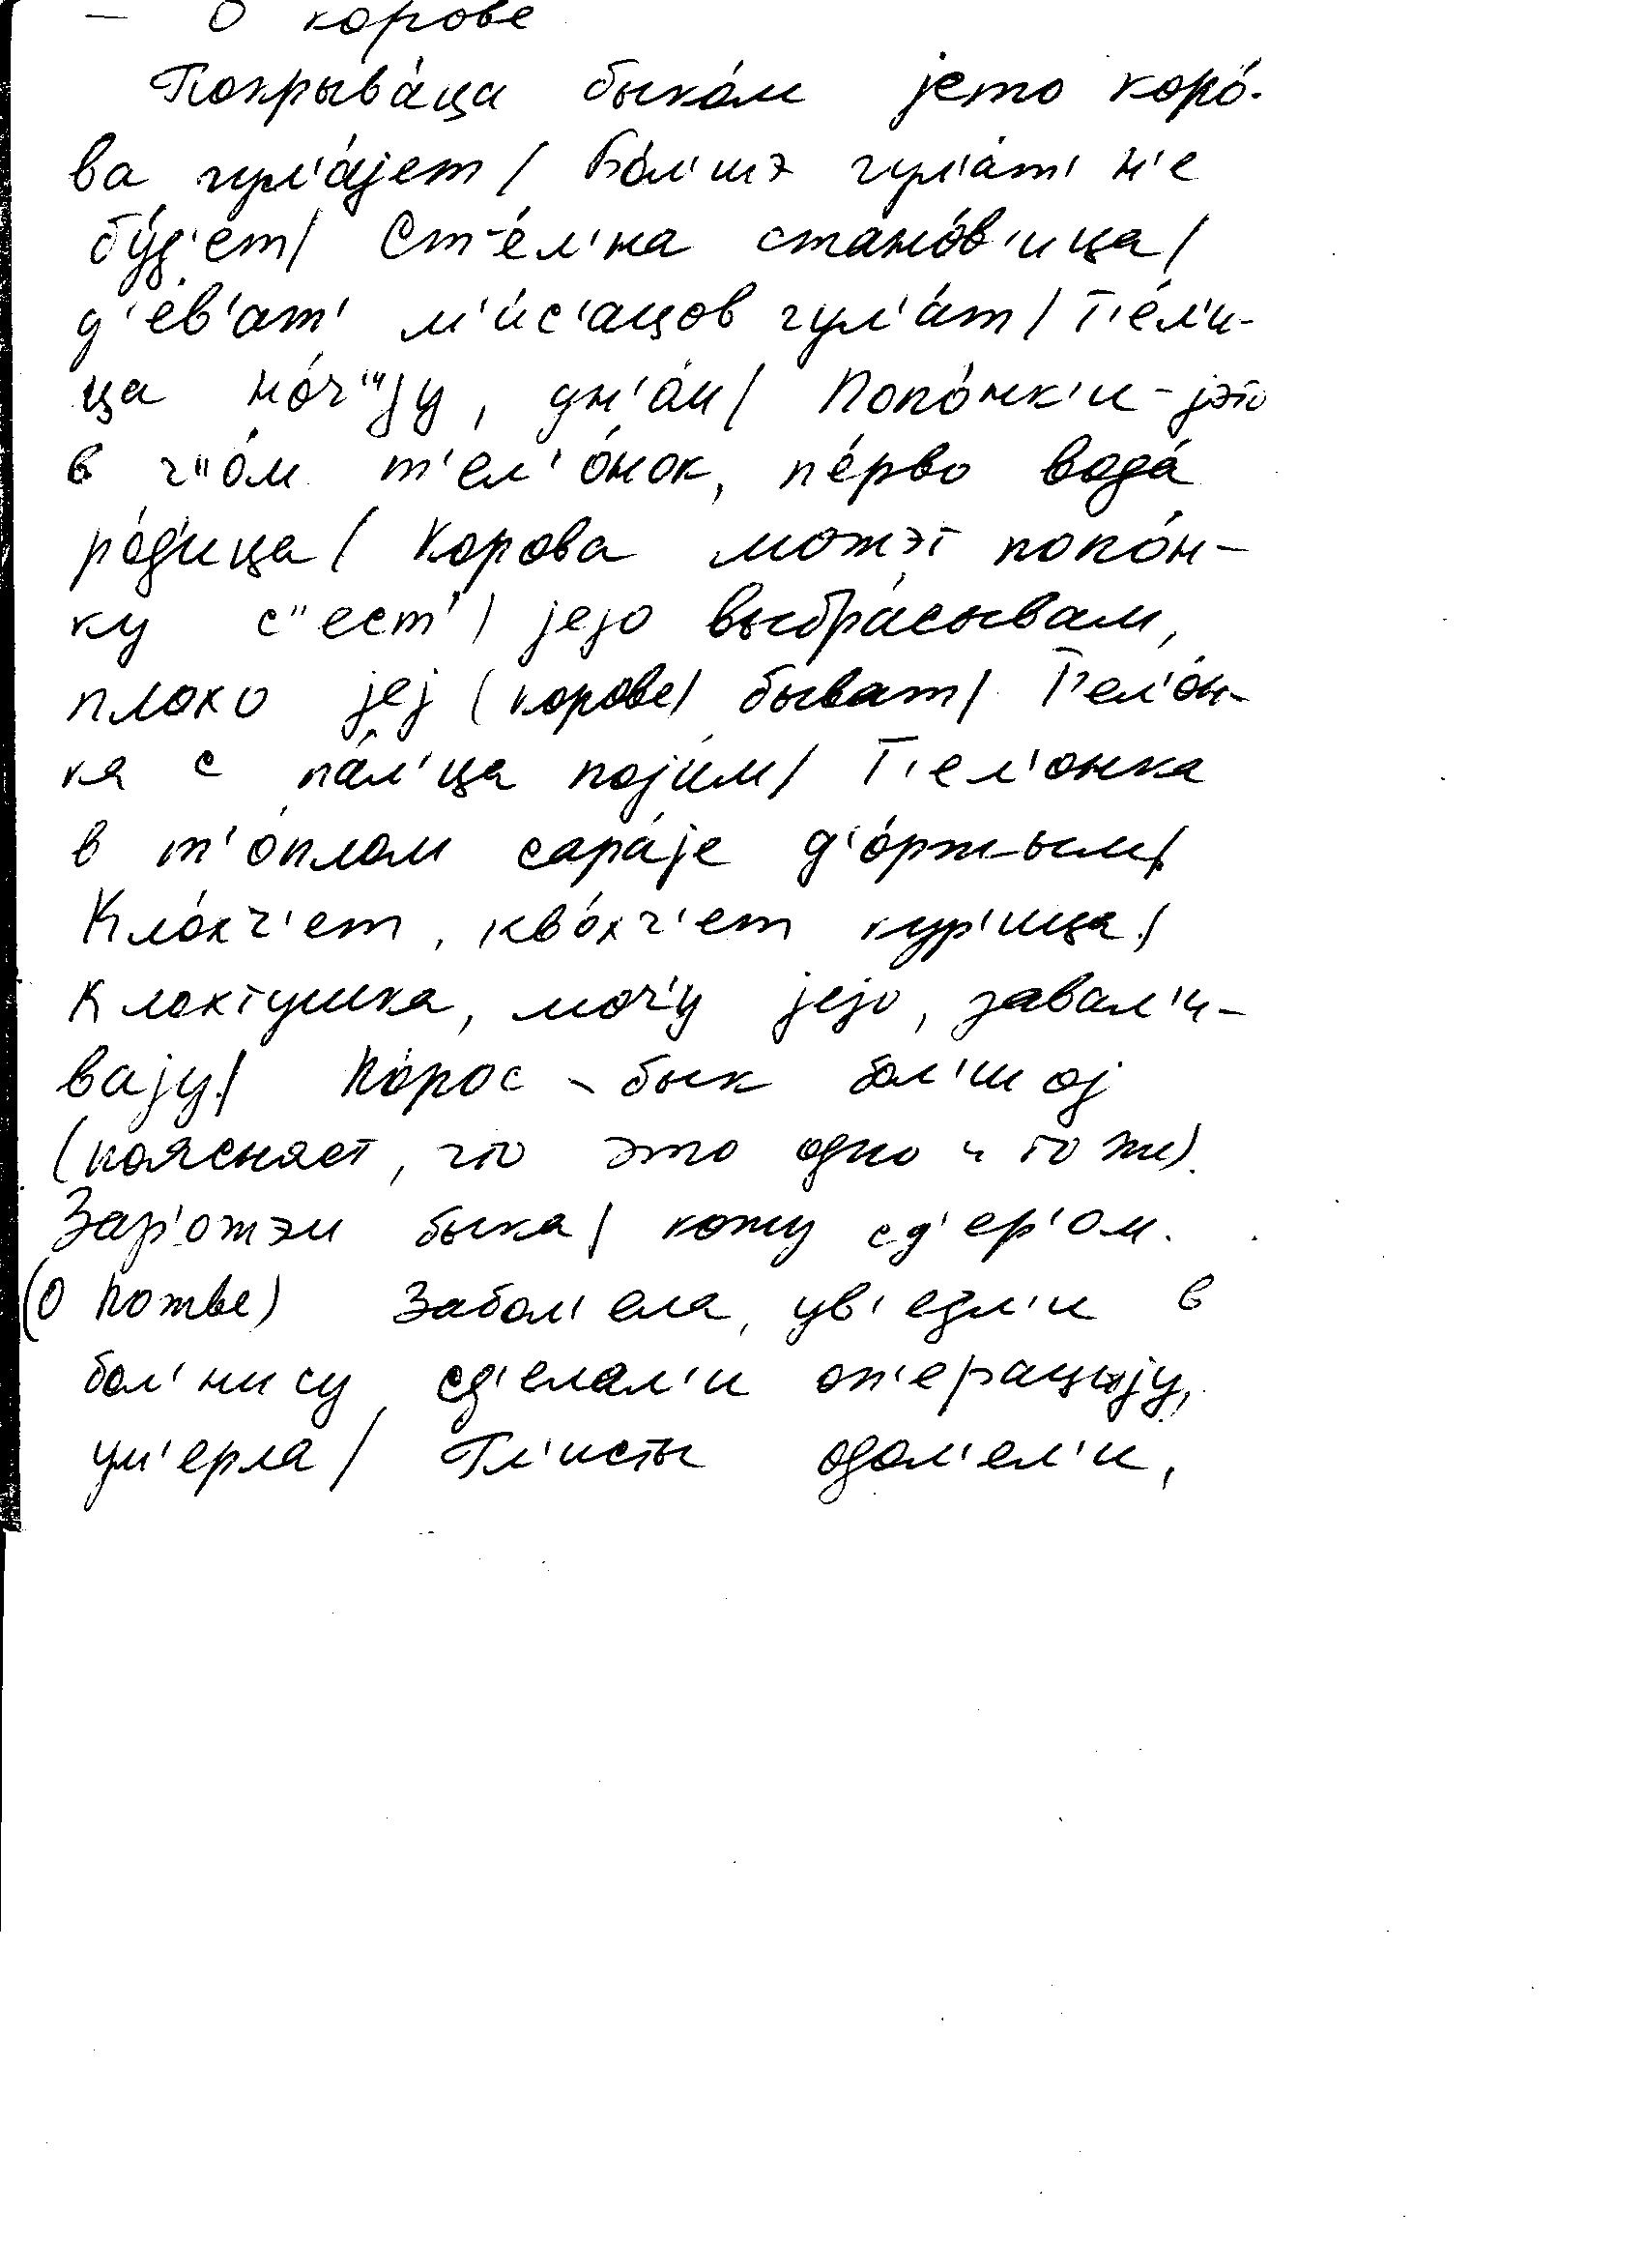 — О корове
Покрыва́ца быко́м jето коро́-
ва гул'а́jет / Бо́л'шэ гул'а́т' н'е
бу́д'ет / Ст'е́л'на стано́в'ица /
д'е́в'ат' м'и́с'ацов гул'а́т / Т'е́л'и-
ца но́ч"jу, дн'о́м / Попо́нк'и - jэто
в ч"о́м т'ел'о́нок, пе́рво вода́
ро́д'ица / Корова можэт попо́н-
ку с"ест' / jejо выбра́сывам,
плохо jej (корове) быват / Т'ел'о́н-
ка с па́л'ца поjи́м / Т'ел'онка
в т'о́плом сара́jе д'о́ржым /
Кло́хч'ет, кво́хч'ет кур'ица /
Клохтушка, моч'у jejо, завал'и-
ваjу / По́рос - бык бол'шоj
(поясняет, что это одно и то же).
Зар'ожэм быка / кожу сд'ер'ом.
(О Пожве) Забол'ела, ув'езл'и в
бол'нису сд'елал'и оп'ерацыjу,
ум'ерла / Гл'исты одол'ел'и,